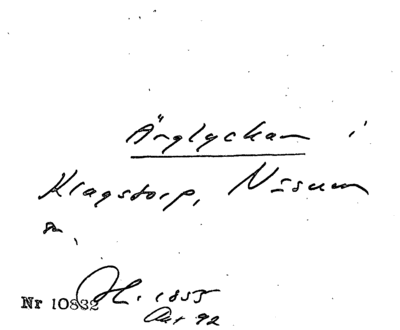 Ärglyckan i
Klagstorp, Näsum
sn,
Nr 10832 Hl. 1855
Akt 92